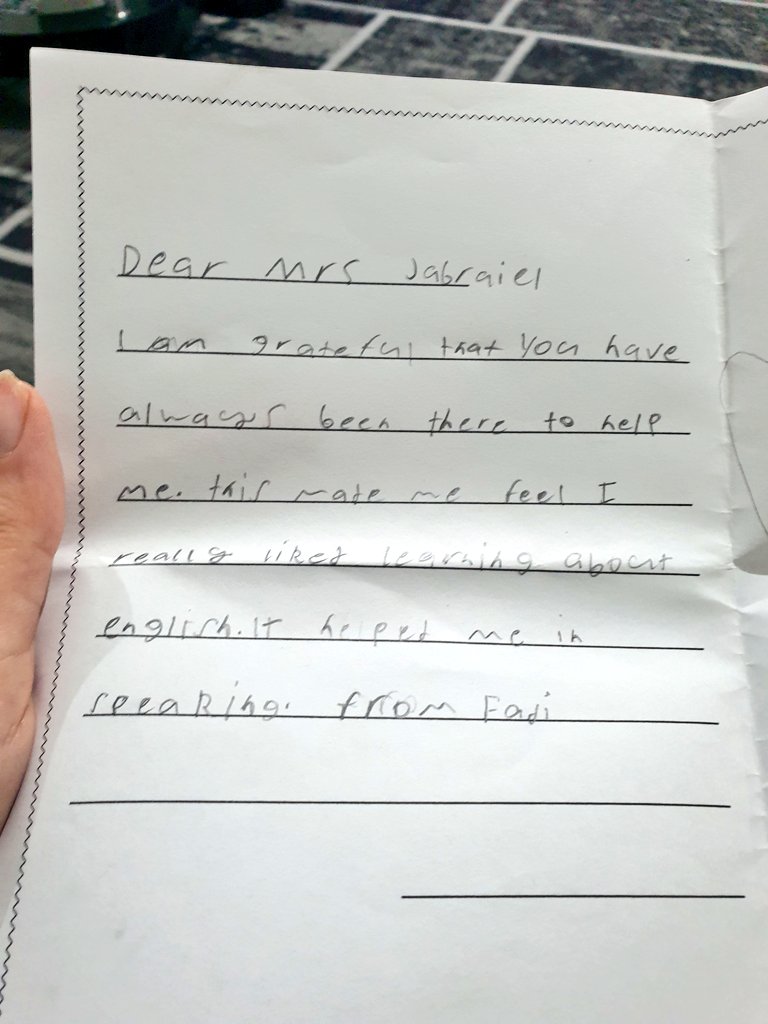 Dear Mrs Jabraiel
I am grateful that you have
always been there to help
me. this made me feel I
really liked learning about
english. It helped me in
speaking. from Fadi